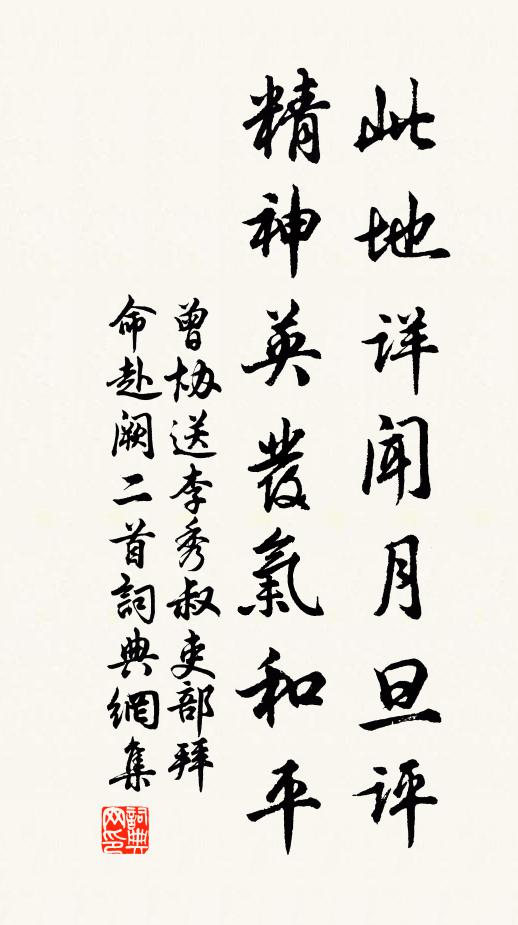 此地详闻月旦评
精神英發氣和平
曾协送李秀叔吏部拜
命赴阙二首詞典網集
詞典网印